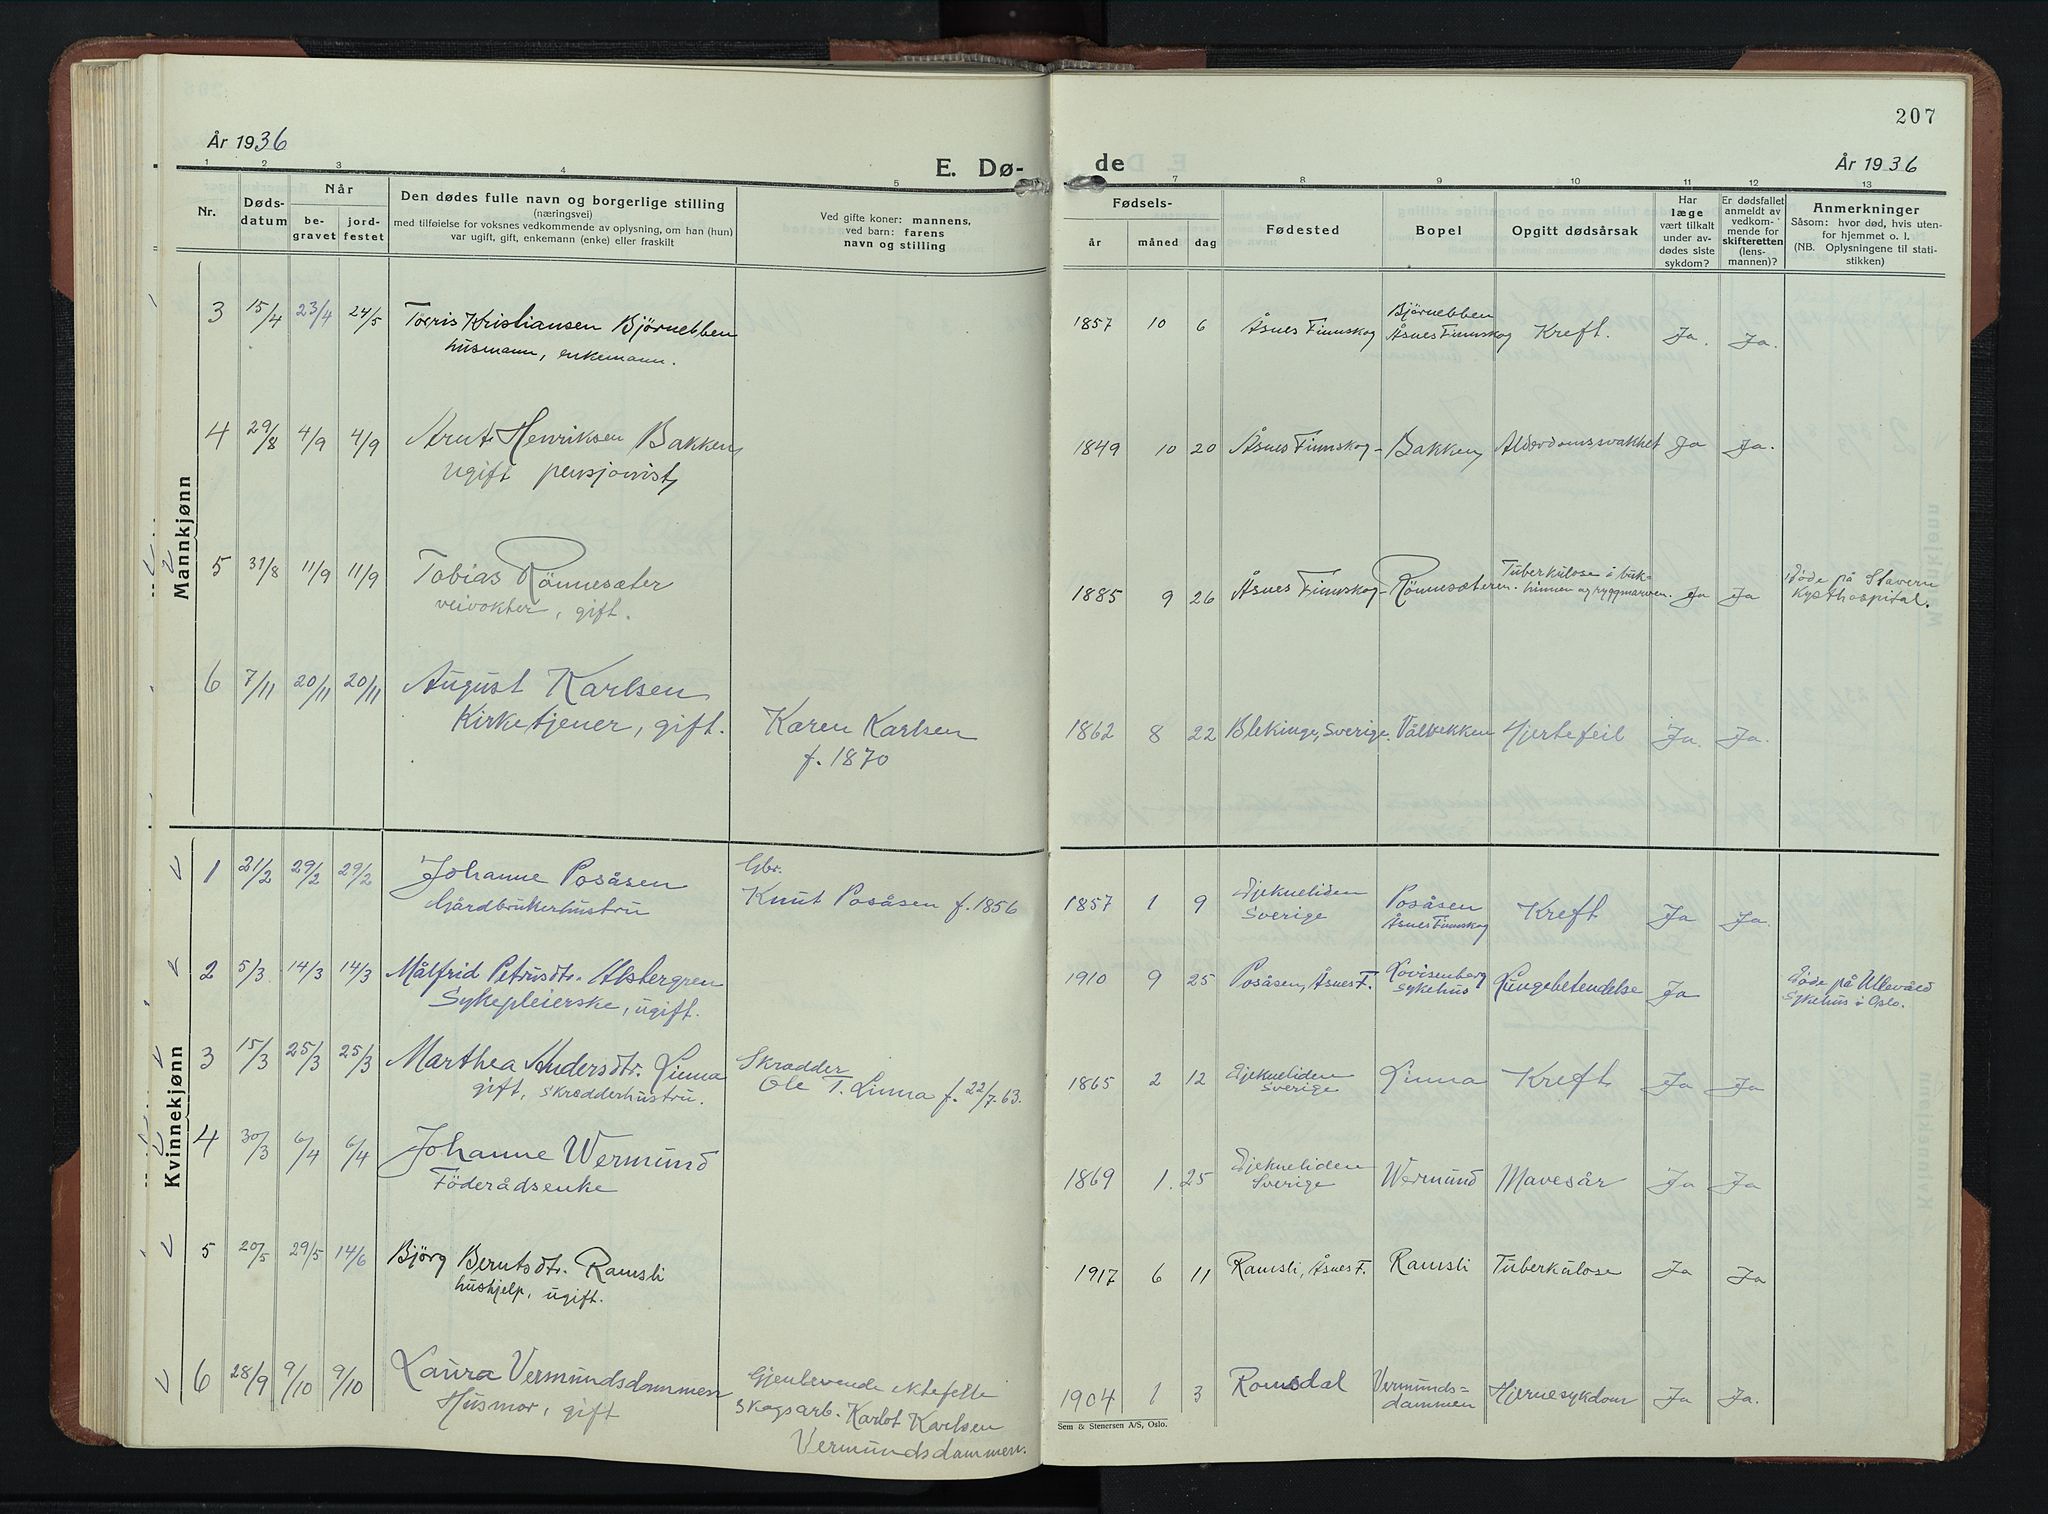 År 1936
E. Dø-
1 2 3 4 5
Nr.
Døds-
datum
Når
be-
gravet
jord-
festet
Den dødes fulle navn og borgerlige stilling
(næringsvei)
med tilføielse for voksnes vedkommende av oplysning, om han (hun)
var ugift, gift, enkemann (enke) eller fraskilt
Ved gifte koner: mannens,
ved barn: farens
navn og stilling
Mannkjønn
3 15/4 23/4 24/5 Kristiansen Bjørnebben
husmann, enkemann.
4 29/8 4/9 4/9 Arnt Henriksen Bakken
ugift pensjonist
5 31/8 11/9 11/9 Tobias Rønnesæter
veivokter, gift.
6 7/11 20/11 20/11 August Karlsen
Kirketjener, gift.
Karen Karlsen
f. 1870
Kvinnekjønn
1 21/2 29/2 29/2 Johanne Posåsen
Gårdbrukerhustru
Gbr.
Knut Posåsen f. 1856
2 5/3 14/3 14/3 Målfrid Petrusdtr.
Sykepleierske, ugift.
3 15/3 25/3 25/3 Marthea Andersdtr. Linna
gift, skrædderhustru.
Skrædder
Ole T. Linna f. 22/7.63.
4 30/3 6/4 6/4 Johanne Wermund
Föderådsenke
5 20/5 29/5 14/6 Björg Berntsdtr. Ramsli
hushjelp, ugift.
6 28/9 9/10 9/10 Laura Vermundsdammen
Husmor, gift
Gjenlevende ektefelle
skogsarb. Karlot Karlsen
Vermundsdammen.
207
de
År 1936
7 8 9 10 11 12 13
Fødsels-
år måned dag
Fødested
Bopel
Opgitt dødsårsak
Har
læge
vært tilkalt
under av-
dødes siste
sykdom?
Er dødsfallet
anmeldt av
vedkom-
mende for
skifteretten
(lens-
mannen)?
Anmerkninger
Såsom: hvor død, hvis uten-
for hjemmet o. l.
(NB. Oplysningene til stati-
stikken)
1857 10 6 Åsnes Finnskog Bjørnebben
Åsnes Finnskog Kreft. Ja. Ja.
1849 10 20 Åsnes Finnskog - Bakken Alderdomssvakhet Ja Ja.
1885 9 26 Åsnes Finnskog - Rønnesæteren. Tuberkulose i buk-
hinnen og ryggmarven. Ja Ja Døde på Stavern
Kysthospital.
1862 8 22 Blekinge, Sverige. Vålbekken Hjertefeil Ja. Ja.
1857 1 9 Djekneliden
Sverige Posåsen
Åsnes Finnskog Kreft Ja Ja.
1910 9 25 Posåsen, Åsnes F. Lovisenberg
sykehus Lungebetendelse Ja Døde på Ullevåld
Sykehus i Oslo.
1865 2 12 Djekneliden
Sverige Linna Kreft Ja Ja
1869 1. 25 Djekneliden
Sverige Wermund Mavesår Ja Ja
1917 6 11 Ramsli, Åsnes F. Ramsli Tuberkulose Ja Ja
1904 1 3 Romsdal Vermunds=
dammen Hjernesykdom Ja Ja.
Sem & Stenersen A/S, Oslo.